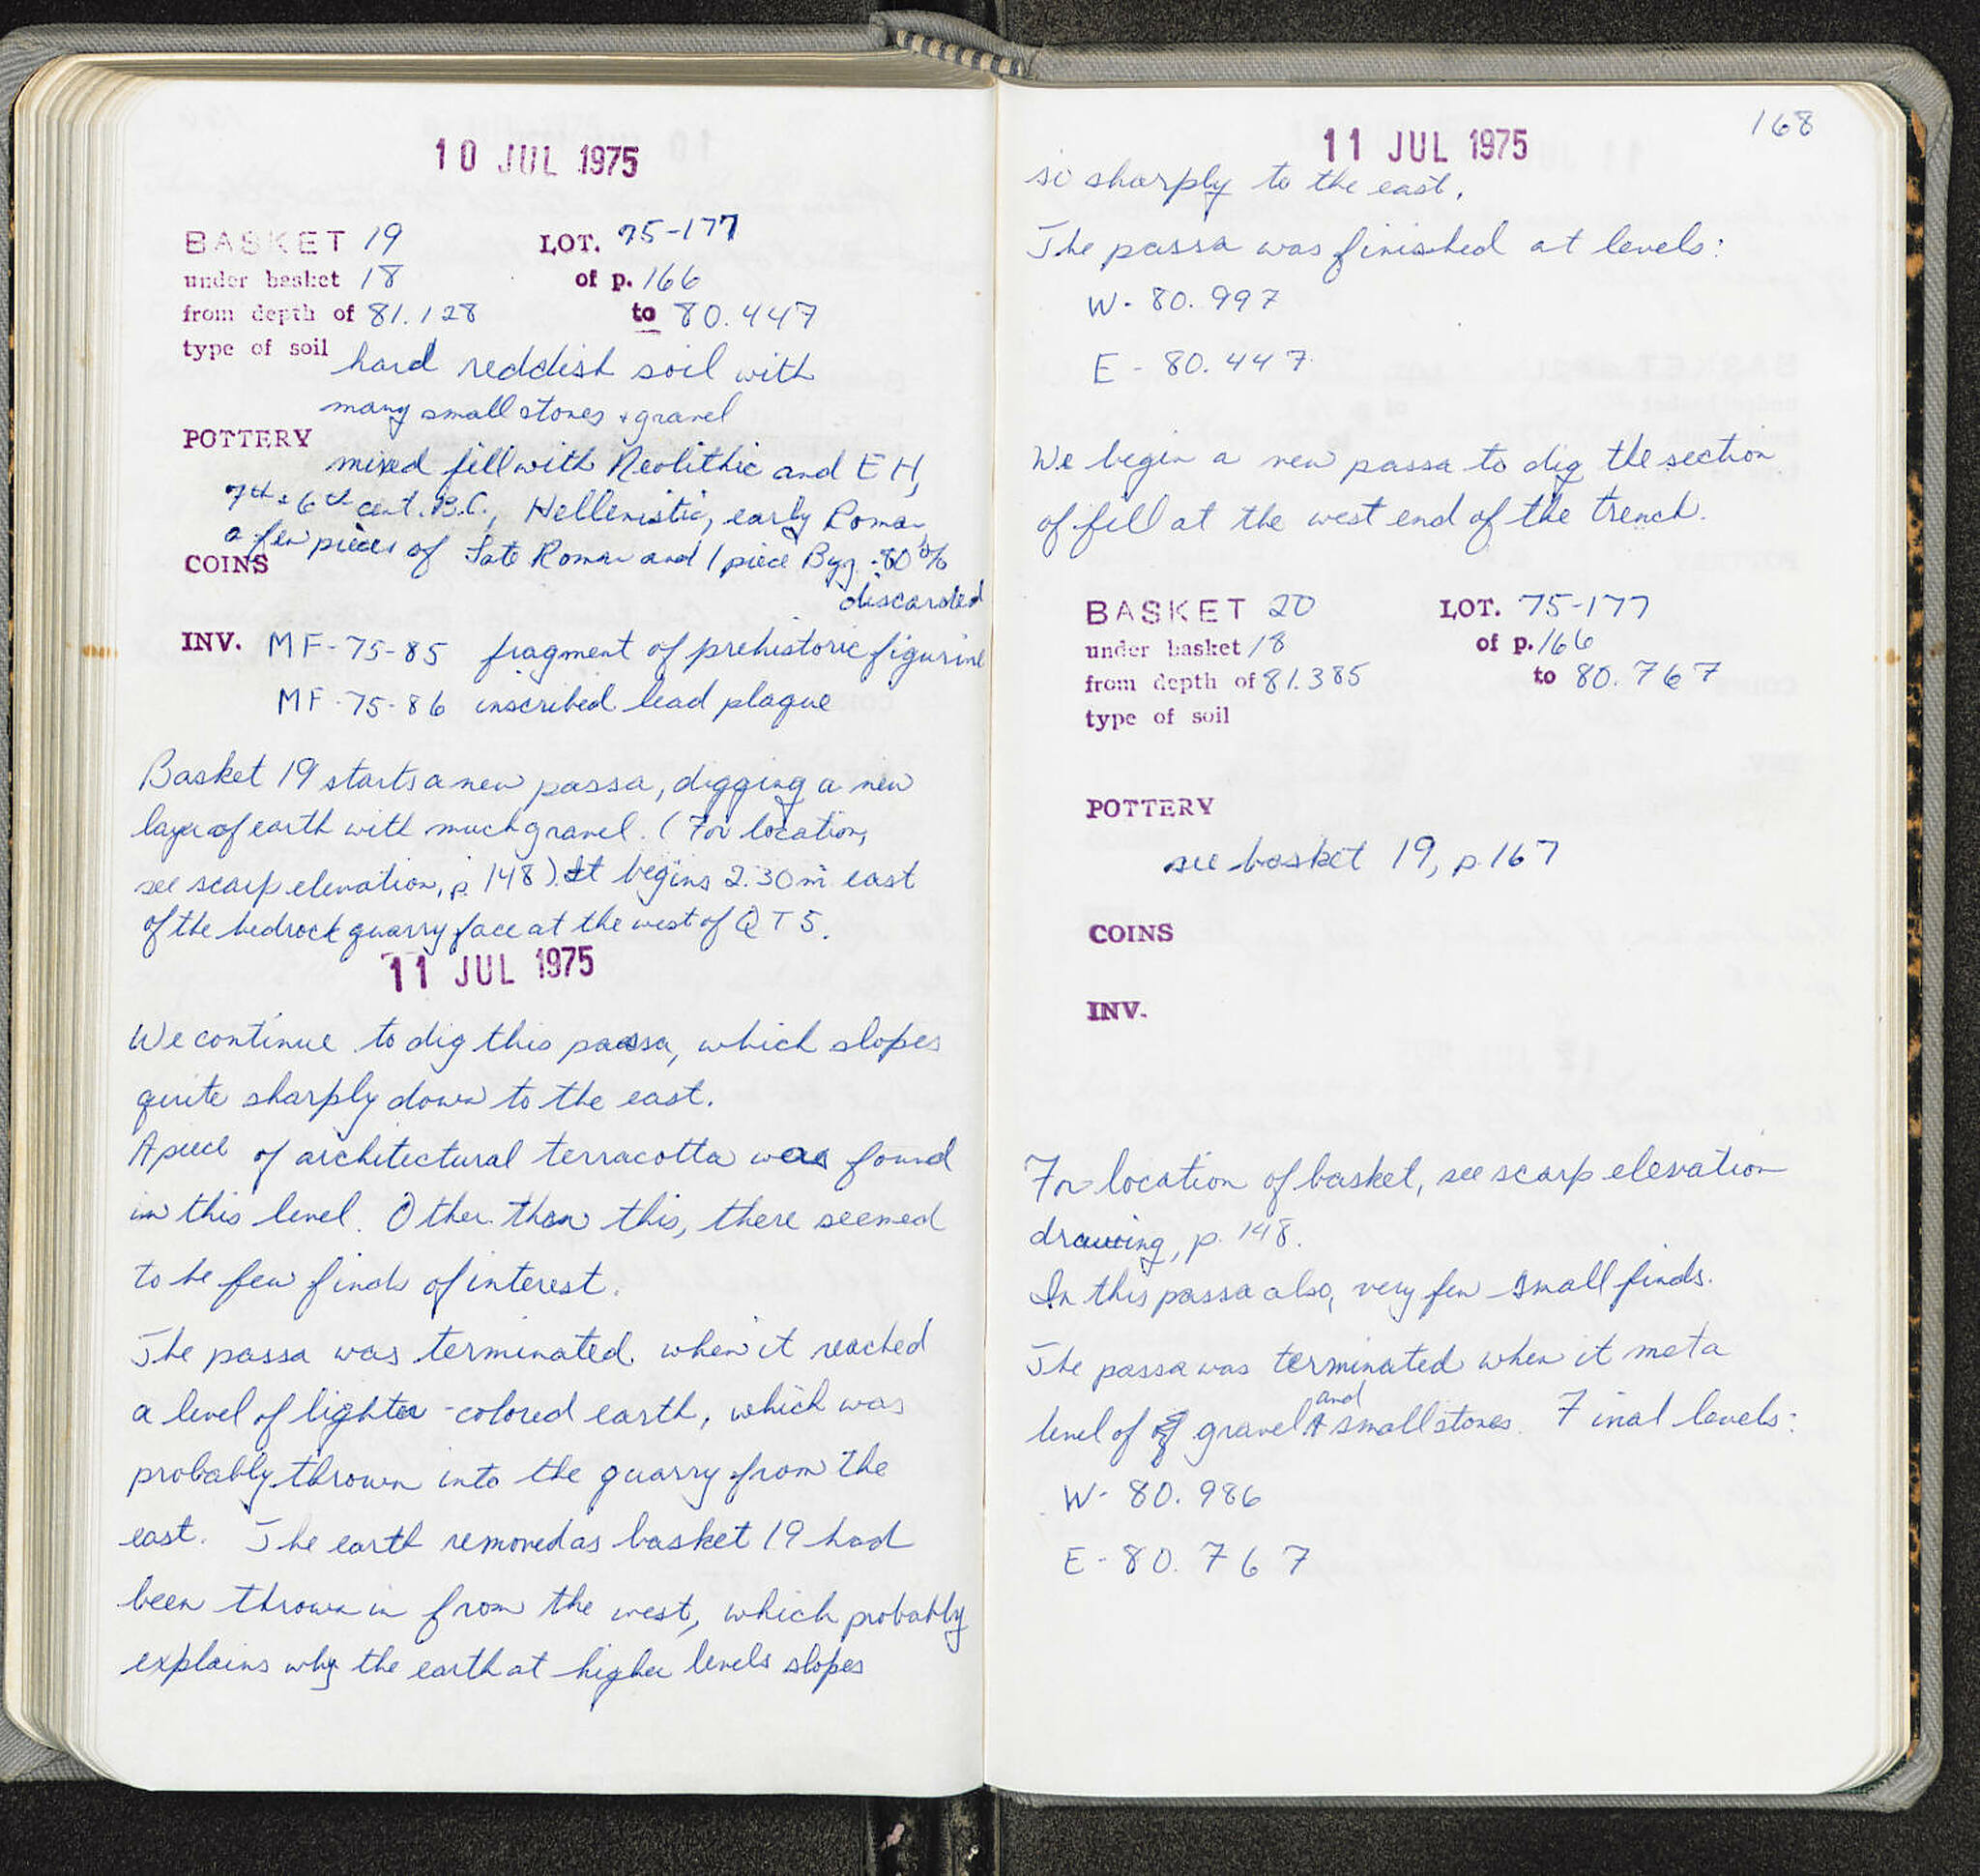 10 JUL 1975
BASKET 19 LOT. 75-177
under basket 18 of p. 166
from depth of 81.128 to 80.447
type of soil hard reddish soil with
many small stones + gravel
POTTERY
mixed fill with Neolithic and EH,
7th & 6th cent. B.C., Hellenistic, early Roman
a few pieces of Late Roman and 1 piece Byz. - 80%
COINS
discarded
INV. MF-75-85 fragment of prehistoric figurine
MF-75-86 inscribed lead plaque
Basket 19 starts a new passa, digging a new
layer of earth with much gravel. (For location,
see scarp elevation, p. 148). It begins 2.30 m east
of the bedrock quarry face at the west of QT5.
11 JUL 1975
We continue to dig this passa, which slopes
quite sharply down to the east.
A piece of architectural terracotta was found
in this level. Other than this, there seemed
to be few finds of interest.
The passa was terminated when it reached
a level of lighter-colored earth, which was
probably thrown into the quarry from the
east. The earth removed as basket 19 had
been thrown in from the west, which probably
explains why the earth at higher levels slopes
168
11 JUL 1975
so sharply to the east.
The passa was finished at levels:
W- 80.997
E - 80.447
We begin a new passa to dig the section
of fill at the west end of the trench.
BASKET 20 LOT. 75-177
under basket 18 of p. 166
from depth of 81.385 to 80.767
type of soil
POTTERY
see basket 19, p. 167
COINS
INV.
For location of basket, see scarp elevation
drawing, p. 148.
In this passa also, very few small finds.
The passa was terminated when it met a
level of gravel and small stones. Final levels:
W- 80.986
E - 80.767